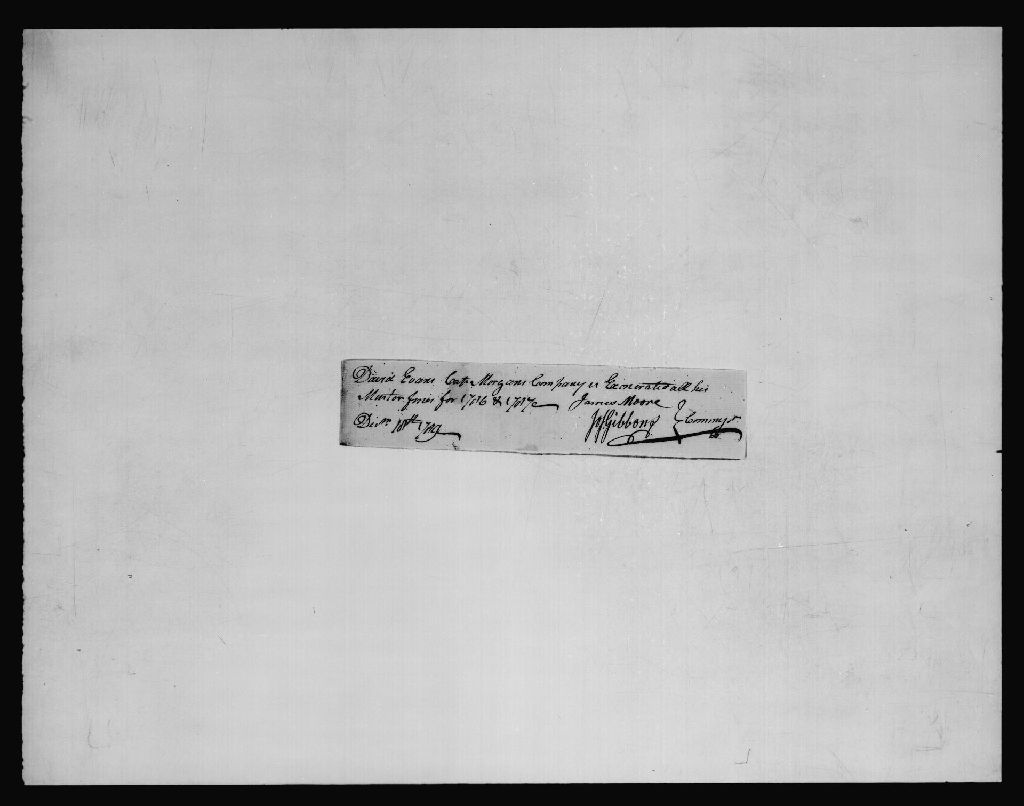 David Evans Capt. Morgans Company is Exonerated all his
Muster fines for 1786 & 1787
James Moore
Decr. 18th 1787
Jas Gibbons } Commisrs